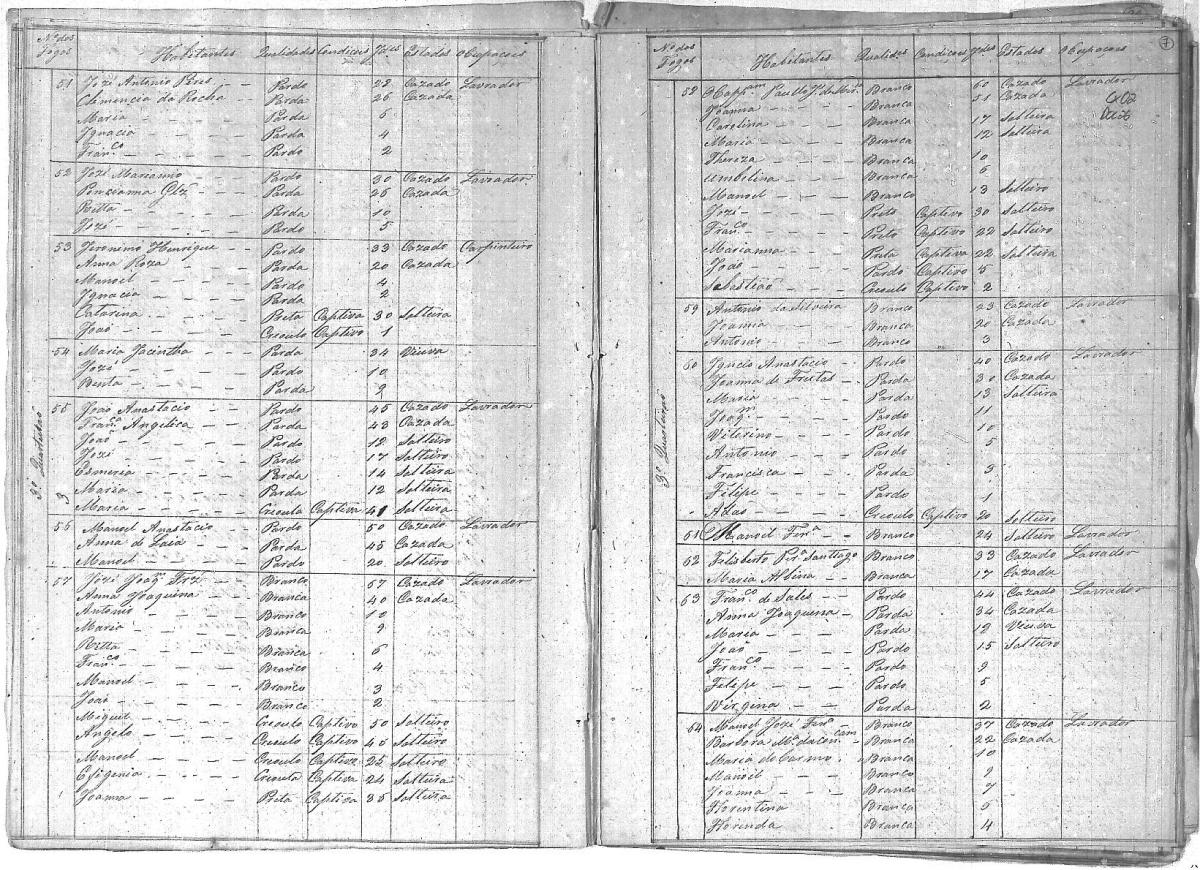 Nº dos Fogos Habitantes Qualidades Condicões Id.es Estados Ocupacoes
51 Jozé Antonio Pires Pardo 28 Cazado Lavrador
Clemencia da Rocha Parda 26 Cazada
Maria Parda 5
Ignacia Parda 4
Fran.co Pardo 2
52 Jozé Marianno Pardo 30 Cazado Lavrador
Glz Parda 26 Cazada
Ritta Parda 10
Jozé Pardo 5
53 Jeronimo Henrique Pardo 33 Cazado Carpinteiro
Anna Roza Parda 20 Cazada
Manoel Pardo 4
Ignacia Parda 2
Catarina Preta Captiva 30 Solteira
Joaõ Creoulo Captivo 1
54 Maria Jacintha Parda 34 Viuva
Jozé Pardo 10
Benta Parda 9
3º Quarteiraõ
55 Joaõ Anastacio Pardo 45 Cazado Lavrador
Fran.ca Angelica Parda 43 Cazada
Joaõ Pardo 12 Solteiro
Jozé Pardo 17 Solteiro
Esmeria Parda 14 Solteira
Maria Parda 12 Solteira
3
Maria Creoula Captiva 41 Solteira
56 Manoel Anastacio Pardo 50 Cazado Lavrador
Anna de Laia Parda 45 Cazada
Manoel Pardo 20 Solteiro
57 Jozé Joaq.m Branco 57 Cazado Lavrador
Anna Joaquina Branca 40 Cazada
Antonio Branco 10
Maria Branca 9
Ritta Branca 6
Fran.co Branco 4
Manoel Branco 3
Joaõ Branco 2
Miguel Creoulo Captivo 50 Solteiro
Angelo Creoulo Captivo 45 Solteiro
Manoel Creoulo Captivo 25 Solteiro
Efigenia Creoula Captiva 24 Solteira
Joanna Preta Captiva 35 Solteira
7
Nº dos Fogos Habitantes Qualid.es Condicoes Id.es Estados Ocupacoes
58 Capp.am Paullo Branco 60 Cazado Lavrador
Joanna Branca 51 Cazada
Carolina Branca 17 Solteira
Cx02
Maria Branca 12 Solteira
Thereza Branca 10
Umbelina Branca 6
Manoel Branco 13 Solteiro
Jozé Preto Captivo 30 Solteiro
Fran.co Preto Captivo 22 Solteiro
Marianna Preta Captiva 22 Solteira
Joaõ Pardo Captivo 5
Sebastiaõ Creoulo Captivo 2
59 Antonio da Silveira Branco 23 Cazado Lavrador
Joanna Branca 20 Cazada
Antonio Branco 3
60 Ignacio Anastacio Pardo 40 Cazado Lavrador
Joanna de Freitas Parda 30 Cazada
Maria Parda 13 Solteira
Joaq.m Pardo 11
Viterino Pardo 10
Antonio Pardo 5
3º Quarteiraõ
Francisca Parda 3
Felipe Pardo 1
Adaõ Creoulo Captivo 20 Solteiro
61 Manoel Fer.a Branco 24 Solteiro Lavrador
62 Felisberto P.a Santiago Branco 33 Cazado Lavrador
Maria Albina Branca 17 Cazada
63 Fran.co de Sales Pardo 44 Cazado Lavrador
Anna Joaquina Parda 34 Cazada
Maria Parda 19 Viuva
Joaõ Pardo 15 Solteiro
Fran.co Pardo 9
Felipe Pardo 5
Virgina Parda 2
64 Manoel Jozé Branco 37 Cazado Lavrador
Barbora M.a Branca 22 Cazada
Maria do Carmo Branca 10
Manoel Branco 9
Joanna Branca 7
Florentina Branca 5
Florinda Branca 4